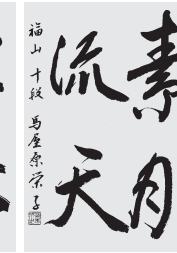 素月
流天
福山 十段 馬屋原栄子